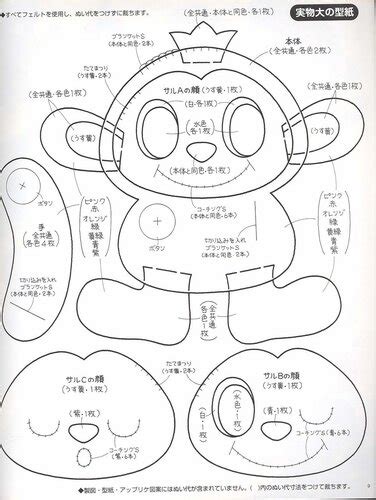 ●すべてフェルトを使用し、ぬい代をつけずに裁ちます。
(全共通・本体と同色・各1枚)
実物大の型紙
ブランケットS
(本体と同色・2本)
本体
(全共通・各色2枚)
たてまつり
(うす黄・2本)
サルAの顔(うす黄・1枚)
(白・各1枚)
(全共通・各色1枚)
(うす黄)
(水色・各1枚)
(うす黄)
(全共通・各色1枚)
(本体と同色・1枚)
コーチングS
(本体と同色・6本)
ボタン
手
(全共通・各色4枚)
(ピンク
赤
オレンジ
緑
黄緑
青
紫)
ボタン
切り込みを入れ
ブランケットS
(本体と同色・2本)
(ピンク
赤
オレンジ
緑
黄緑
青
紫)
切り込みを入れ
ブランケットS
(本体と同色・2本)
(全共通・各色1枚)
サルCの顔
(うす黄・1枚)
たてまつり
(うす黄・2本)
サルBの顔
(うす黄・1枚)
(紫・1枚)
コーチングS
(紫・6本)
(白・1枚)
(水色・1枚)
(青・1枚)
コーチングS(紫・6本)
●製図・型紙・アップリケ図案にはぬい代が含まれていません。( )内のぬい代寸法をつけて裁ちます。
9